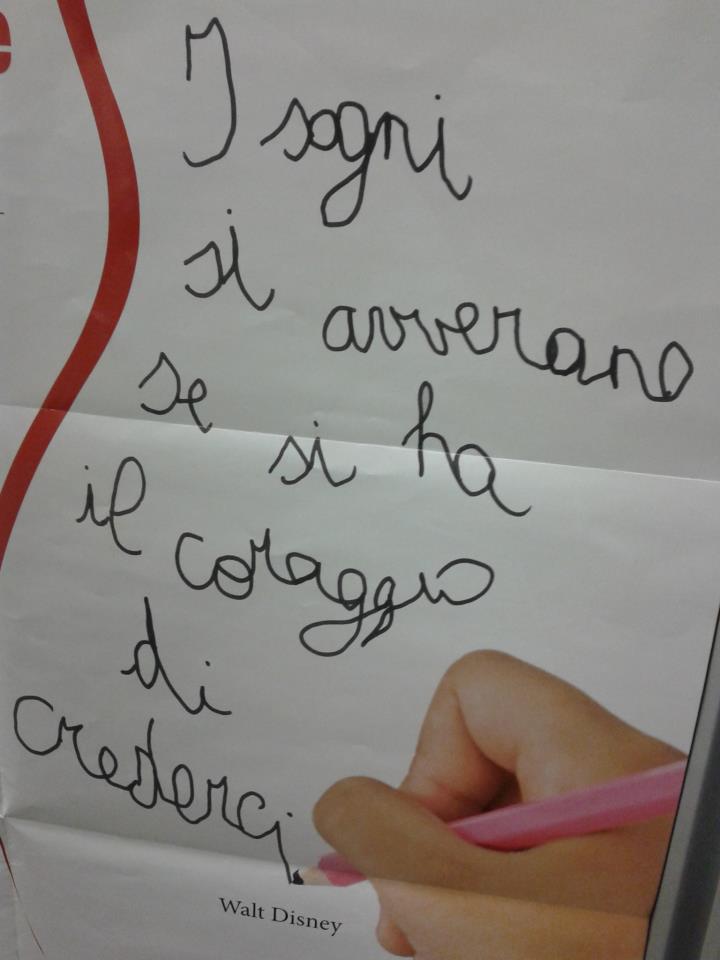 e
I sogni
si avverano
se si ha
il coraggio
di
crederci
Walt Disney